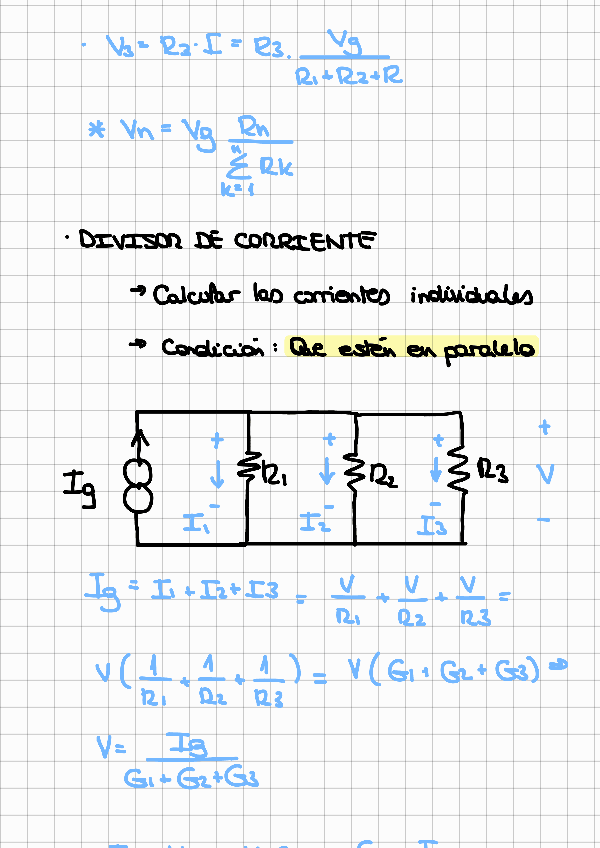 · V3 = R2 · I = R3 · Vg / R1+R2+R
* Vn = Vg Rn / n Σ k=1 Rk
· DIVISOR DE CORRIENTE
→ Calcular las corrientes individuales
→ Condición: Que estén en paralelo
Ig R1 R2 R3
+ + + +
V
- - - -
I1 I2 I3
Ig = I1 + I2 + I3 = V/R1 + V/R2 + V/R3 =
V ( 1/R1 + 1/R2 + 1/R3 ) = V ( G1 + G2 + G3 ) →
V = Ig / G1 + G2 + G3